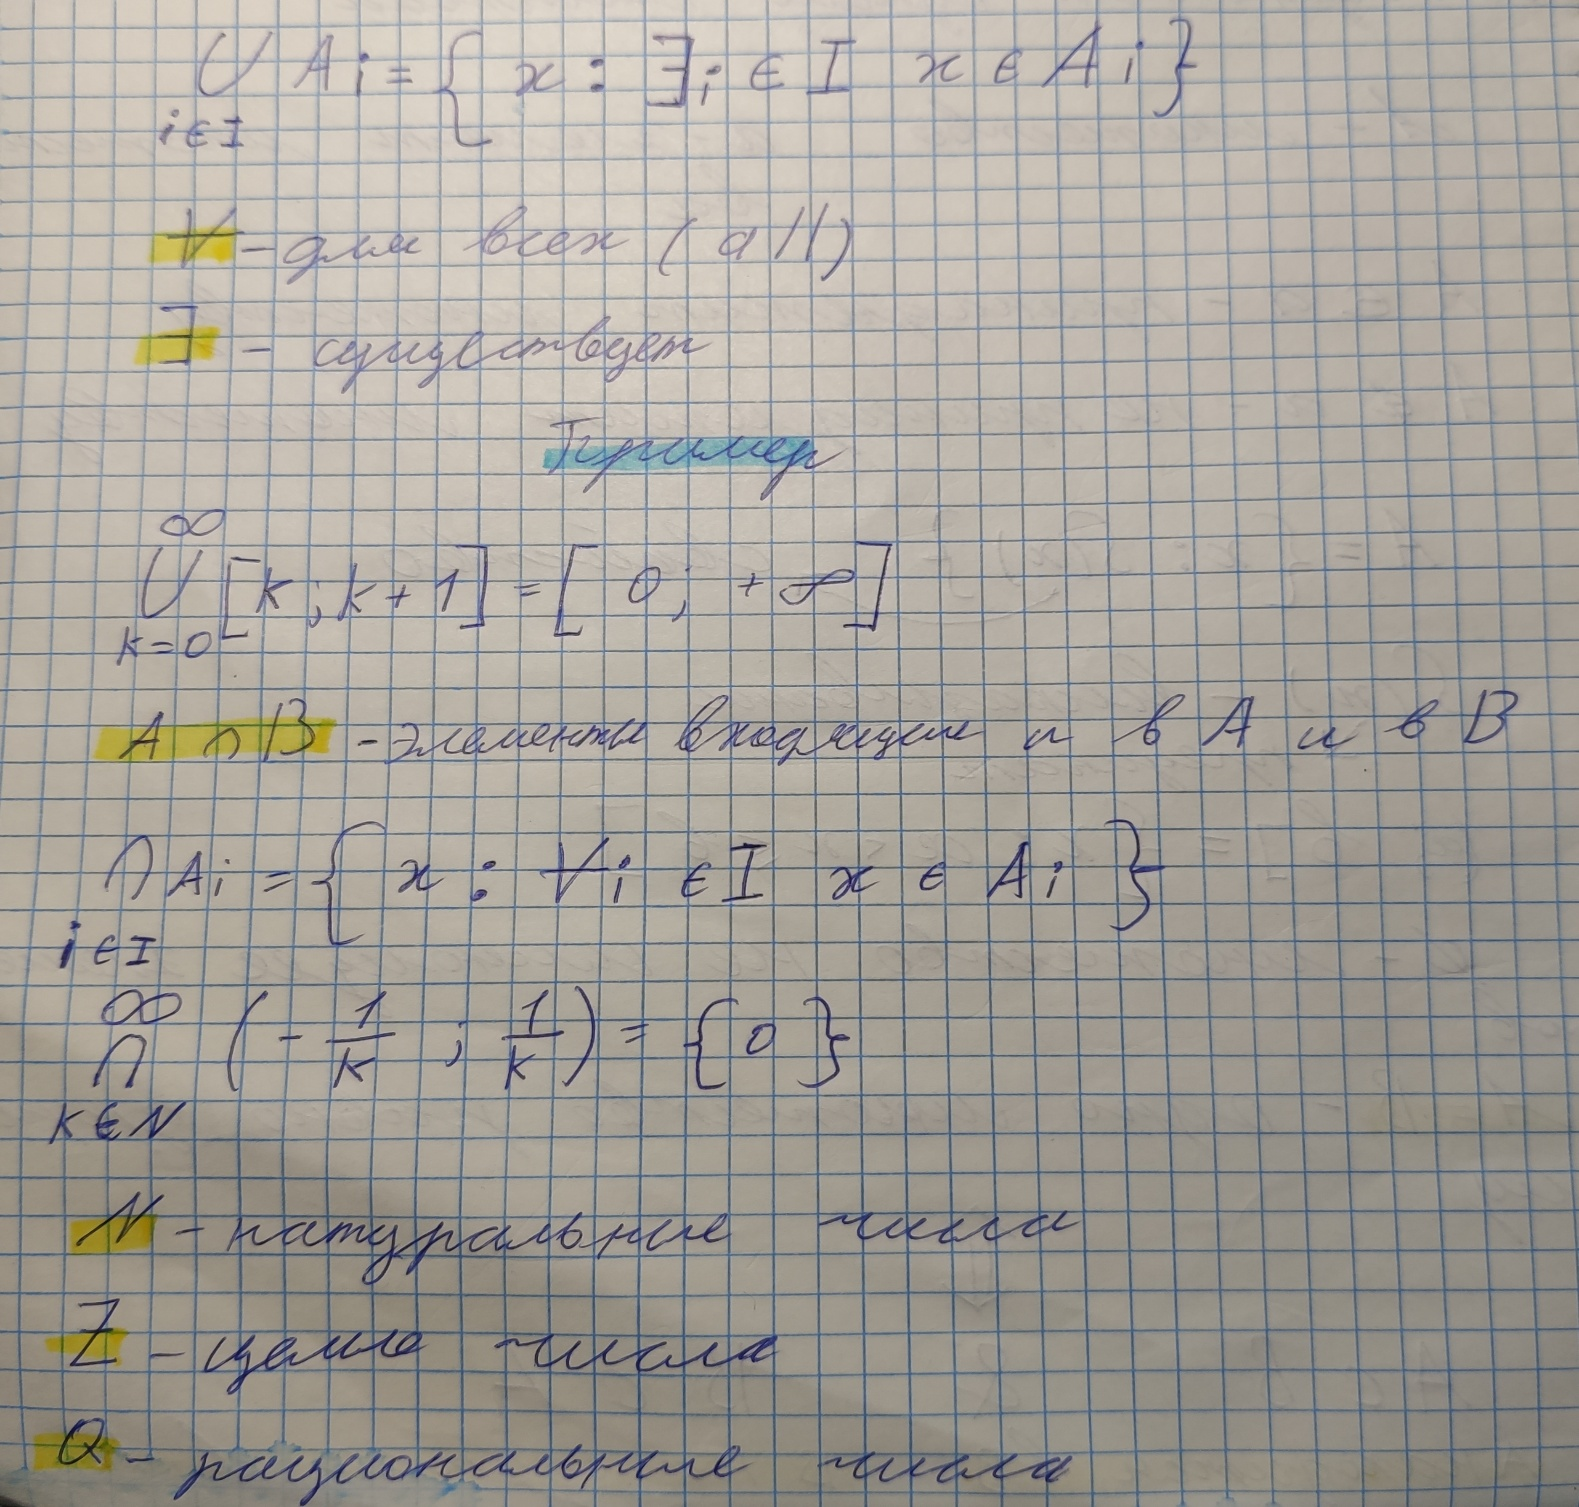 ∪ Ai = { x : ∃i ∈ I x ∈ Ai }
i ∈ I
∀ - для всех ( all )
∃ - существует
Пример
∞
∪ [ k ; k + 1 ] = [ 0 ; + ∞ ]
k = 0
A ∩ B - элементы входящие и в A и в B
∩ Ai = { x : ∀i ∈ I x ∈ Ai }
i ∈ I
∞
∩ ( - 1/k ; 1/k ) = { 0 }
k ∈ N
N - натуральные числа
Z - целые числа
Q - рациональные числа